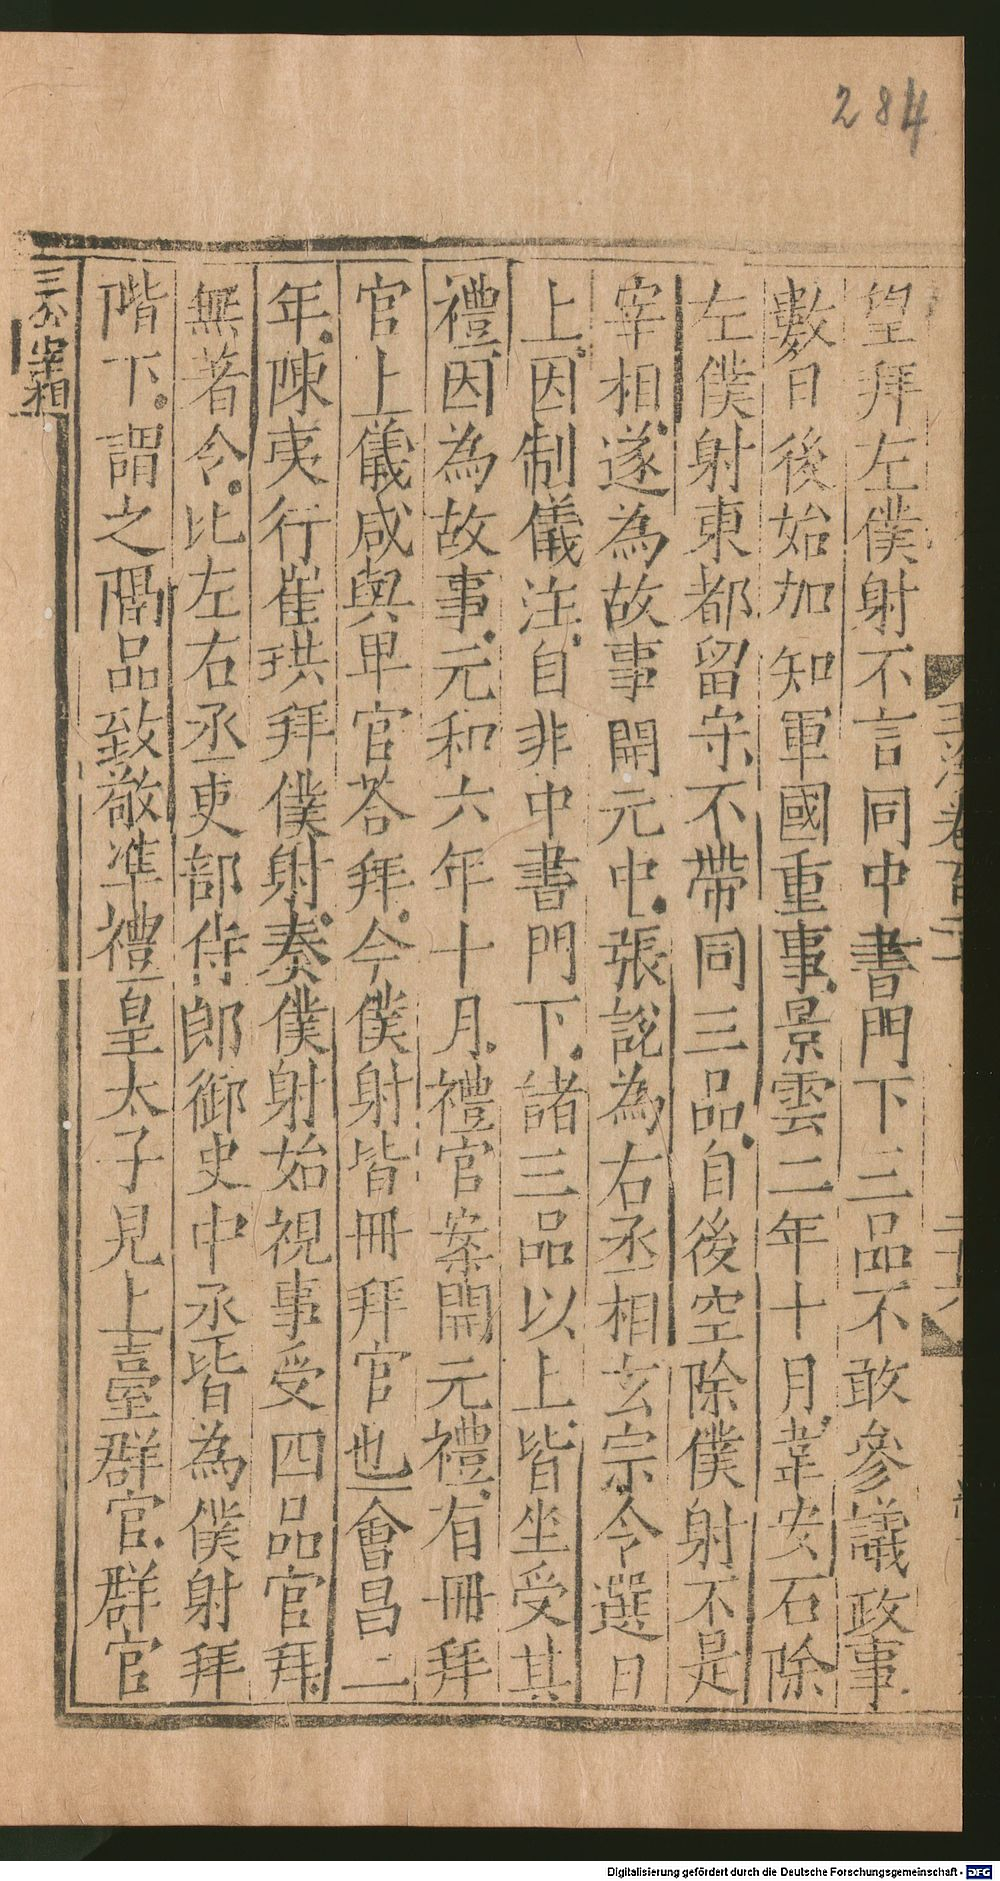 284
望拜左僕射不言同中書門下三品不敢參議政事
數日後始加知軍國重事景雲二年十月韋安石除
左僕射東都留守不帶同三品自後空除僕射不是
宰相遂為故事開元中張說為右丞相玄宗令選日
上因制儀注自非中書門下諸三品以上皆坐受其
禮因為故事元和六年十月禮官案開元禮有冊拜
官上儀咸與卑官荅拜今僕射皆冊拜官也會昌二
年陳夷行崔珙拜僕射奏僕射始視事受四品官拜
無著令比左右丞吏部侍郎御史中丞皆為僕射拜
階下謂之隔品致敬準禮皇太子見上臺群官群官
三公宰相
Digitalisierung gefördert durch die Deutsche Forschungsgemeinschaft - DFG